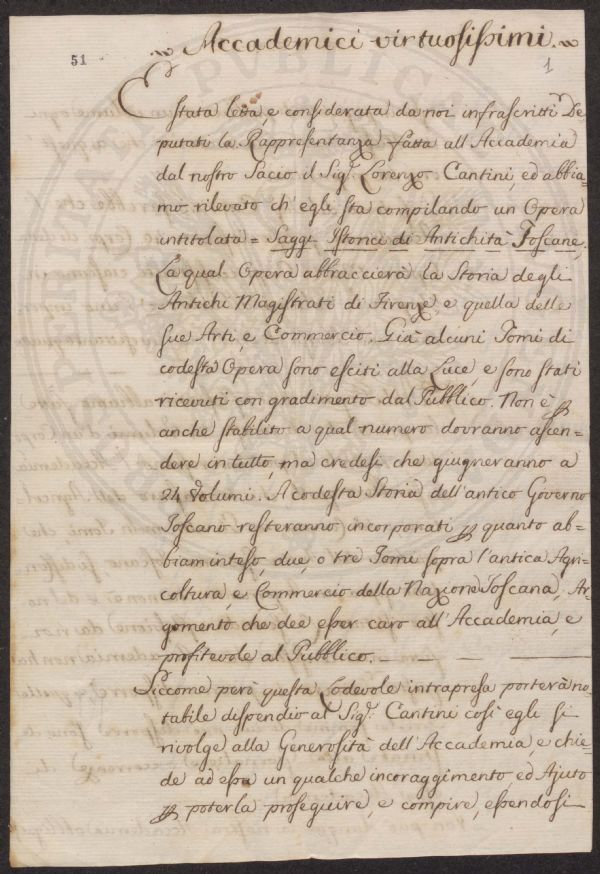 51
Accademici virtuosissimi.
1
E stata letta, e considerata da noi infrascritti De
putati la Rappresentanza fatta all'Accademia
dal nostro Socio il Sig.r Lorenzo Cantini, ed abbia=
mo rilevato ch'egli sta compilando un Opera
intitolata = Saggi Istorici di Antichità Toscane.
La qual Opera abbraccierà la Storia degli
Antichi Magistrati di Firenze, e quella delle
sue Arti, e Commercio. Già alcuni Tomi di
codesta Opera sono esciti alla Luce, e sono stati
ricevuti con gradimento dal Pubblico. Non è p
anche stabilito a qual numero dovranno ascen=
dere in tutto, ma credesi che giugneranno a
24 Volumi. A codesta Storia dell'antico Governo
Toscano resteranno incorporati p quanto ab=
biam inteso, due, o tre Tomi sopra l'antica Agri=
coltura, e Commercio della Nazione Toscana, Ar=
gomento che dee esser caro all'Accademia, e
profitevole al Pubblico. — — — —
Siccome però questa Lodevole intrapresa porterà no=
tabile dispendio al Sig.r Cantini così egli si
rivolge alla Generosità dell'Accademia, e chie=
de ad essa un qualche incoraggimento ed Ajuto
p poterla proseguire, e compire, essendosi